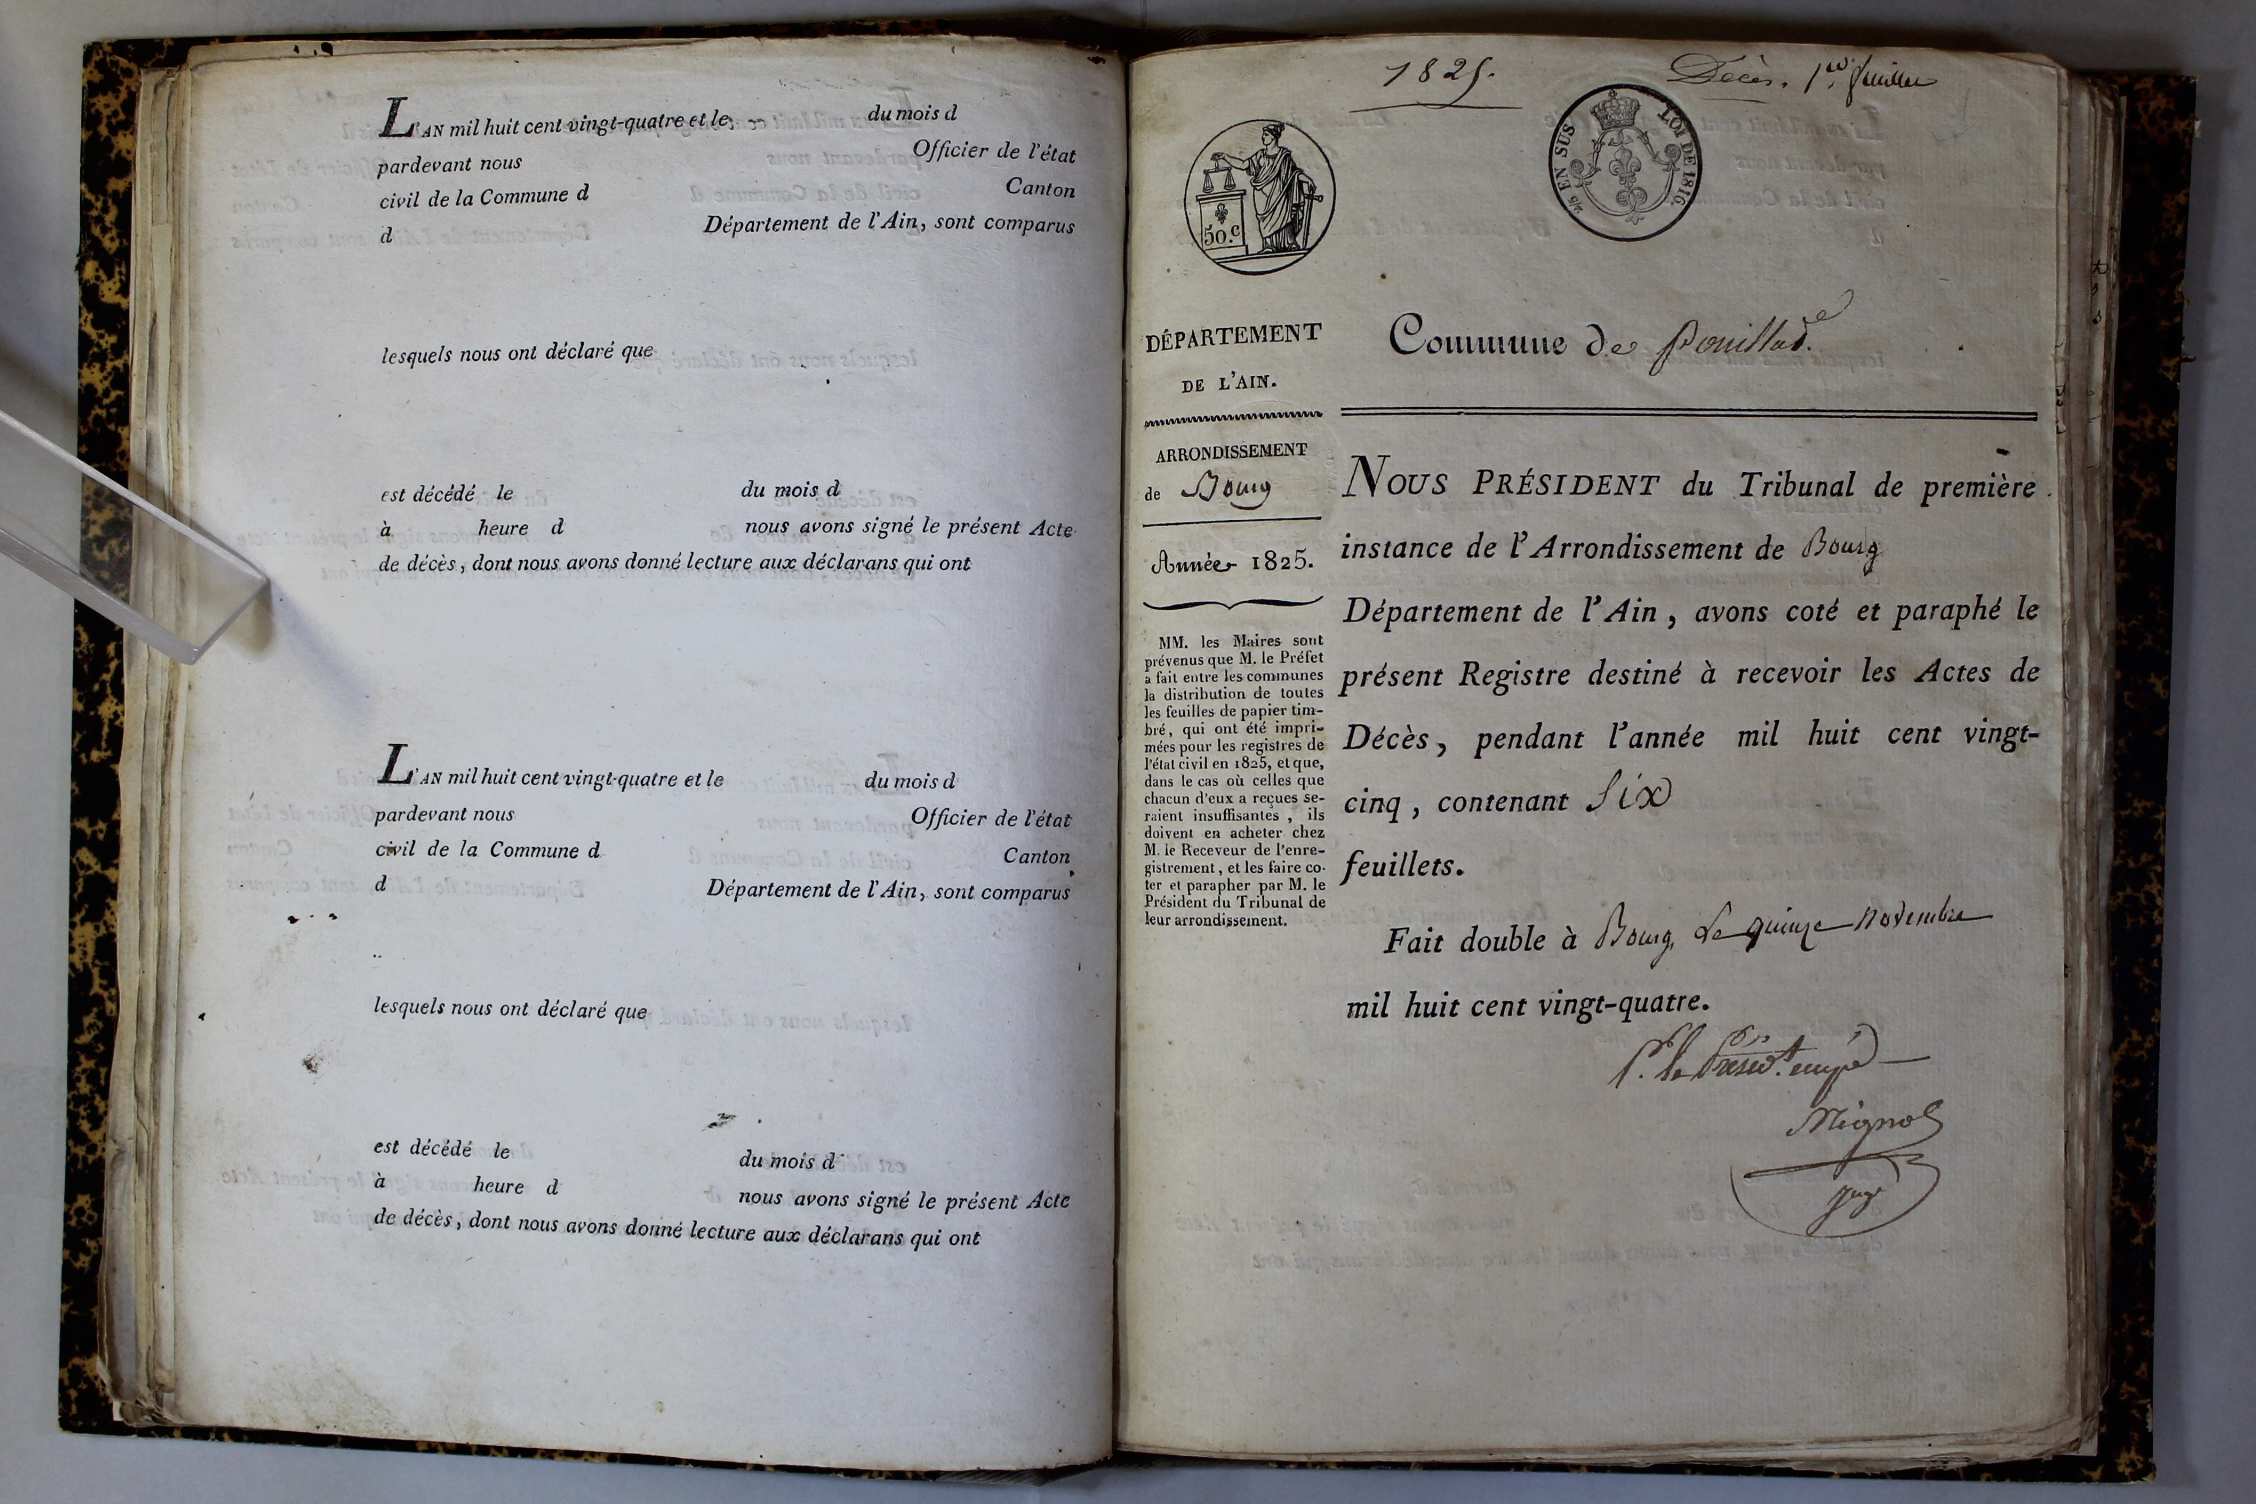 L'AN mil huit cent vingt-quatre et le du mois d
pardevant nous Officier de l'état
civil de la Commune d Canton
d Département de l'Ain, sont comparus
lesquels nous ont déclaré que
est décédé le du mois d
à heure d nous avons signé le présent Acte
de décès, dont nous avons donné lecture aux déclarans qui ont
L'AN mil huit cent vingt-quatre et le du mois d
pardevant nous Officier de l'état
civil de la Commune d Canton
d Département de l'Ain, sont comparus
lesquels nous ont déclaré que
est décédé le du mois d
à heure d nous avons signé le présent Acte
de décès, dont nous avons donné lecture aux déclarans qui ont
1825.
Décès. 1er feuillet
50.c
2/5 EN SUS LOI DE 1816.
DÉPARTEMENT
DE L'AIN.
ARRONDISSEMENT
de Bourg
Année 1825.
MM. les Maires sont
prévenus que M. le Préfet
a fait entre les communes
la distribution de toutes
les feuilles de papier tim-
bré, qui ont été impri-
mées pour les registres de
l'état civil en 1825, et que,
dans le cas où celles que
chacun d'eux a reçues se-
raient insuffisantes, ils
doivent en acheter chez
M. le Receveur de l'enre-
gistrement, et les faire co-
ter et parapher par M. le
Président du Tribunal de
leur arrondissement.
Commune de Pouillad.e
NOUS PRÉSIDENT du Tribunal de première
instance de l'Arrondissement de Bourg
Département de l'Ain, avons coté et paraphé le
présent Registre destiné à recevoir les Actes de
Décès, pendant l'année mil huit cent vingt-
cinq, contenant Six
feuillets.
Fait double à Bourg, Le quinze novembre
mil huit cent vingt-quatre.
Pr. le Présid.t empé
Mignot
juge